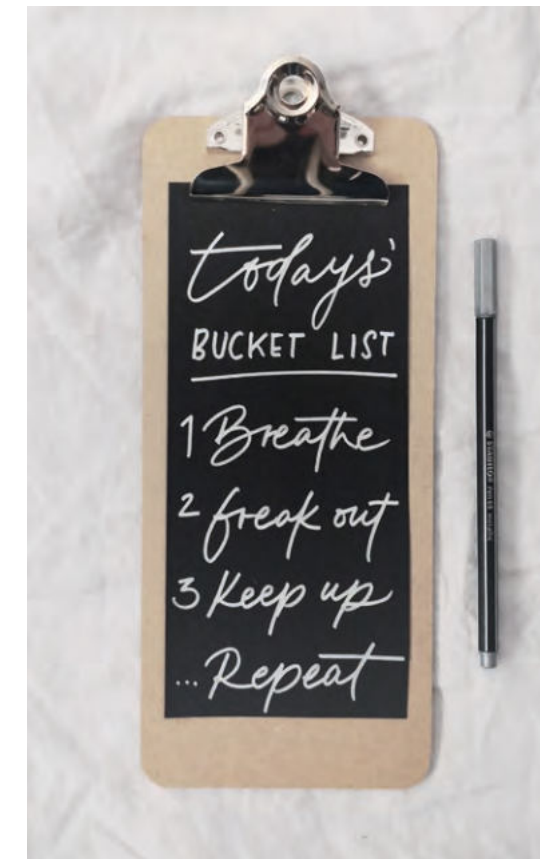 todays'
BUCKET LIST
1 Breathe
2 freak out
3 Keep up
...Repeat